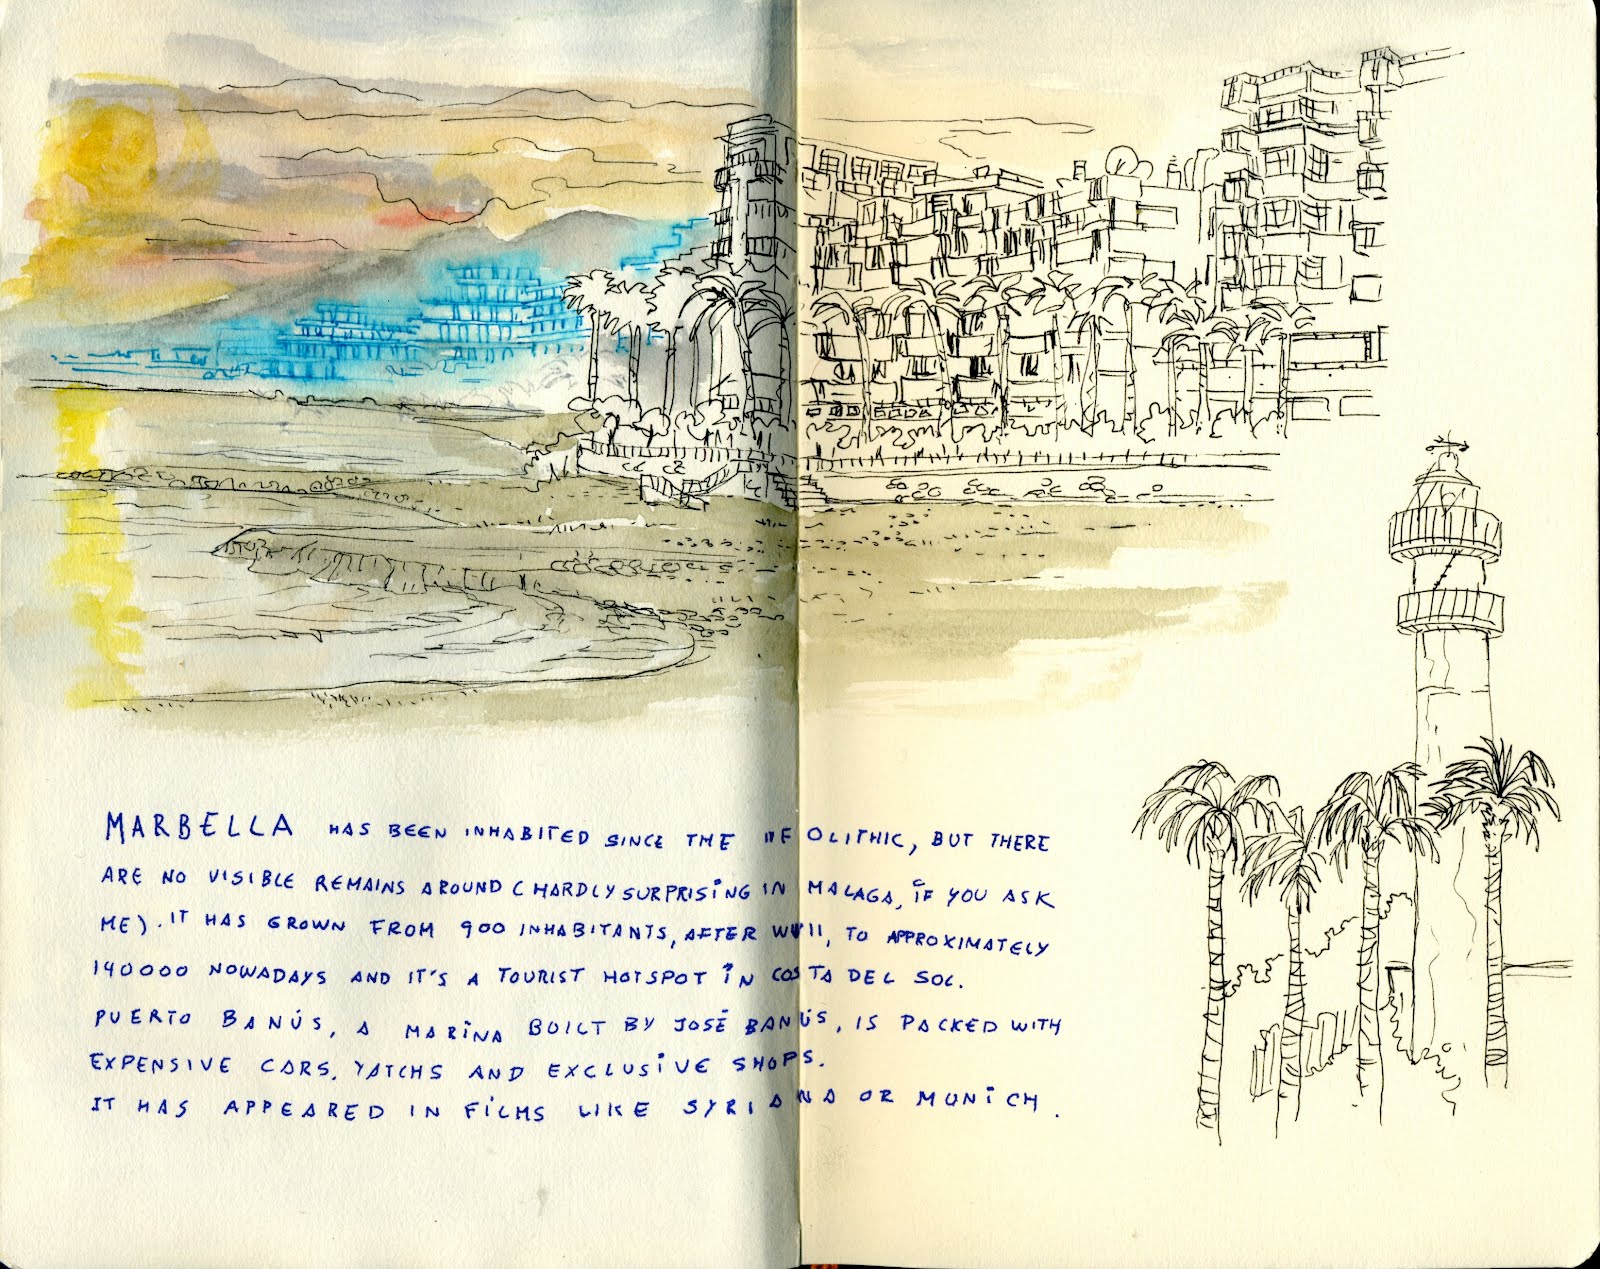 MARBELLA HAS BEEN INHABITED SINCE THE NEOLITHIC, BUT THERE
ARE NO VISIBLE REMAINS AROUND (HARDLY SURPRISING IN MALAGA, IF YOU ASK
ME). IT HAS GROWN FROM 900 INHABITANTS, AFTER WWII, TO APPROXIMATELY
140000 NOWADAYS AND IT'S A TOURIST HOTSPOT IN COSTA DEL SOL.
PUERTO BANÚS, A MARINA BUILT BY JOSÉ BANÚS, IS PACKED WITH
EXPENSIVE CARS, YATCHS AND EXCLUSIVE SHOPS.
IT HAS APPEARED IN FILMS LIKE SYRIANA OR MUNICH.